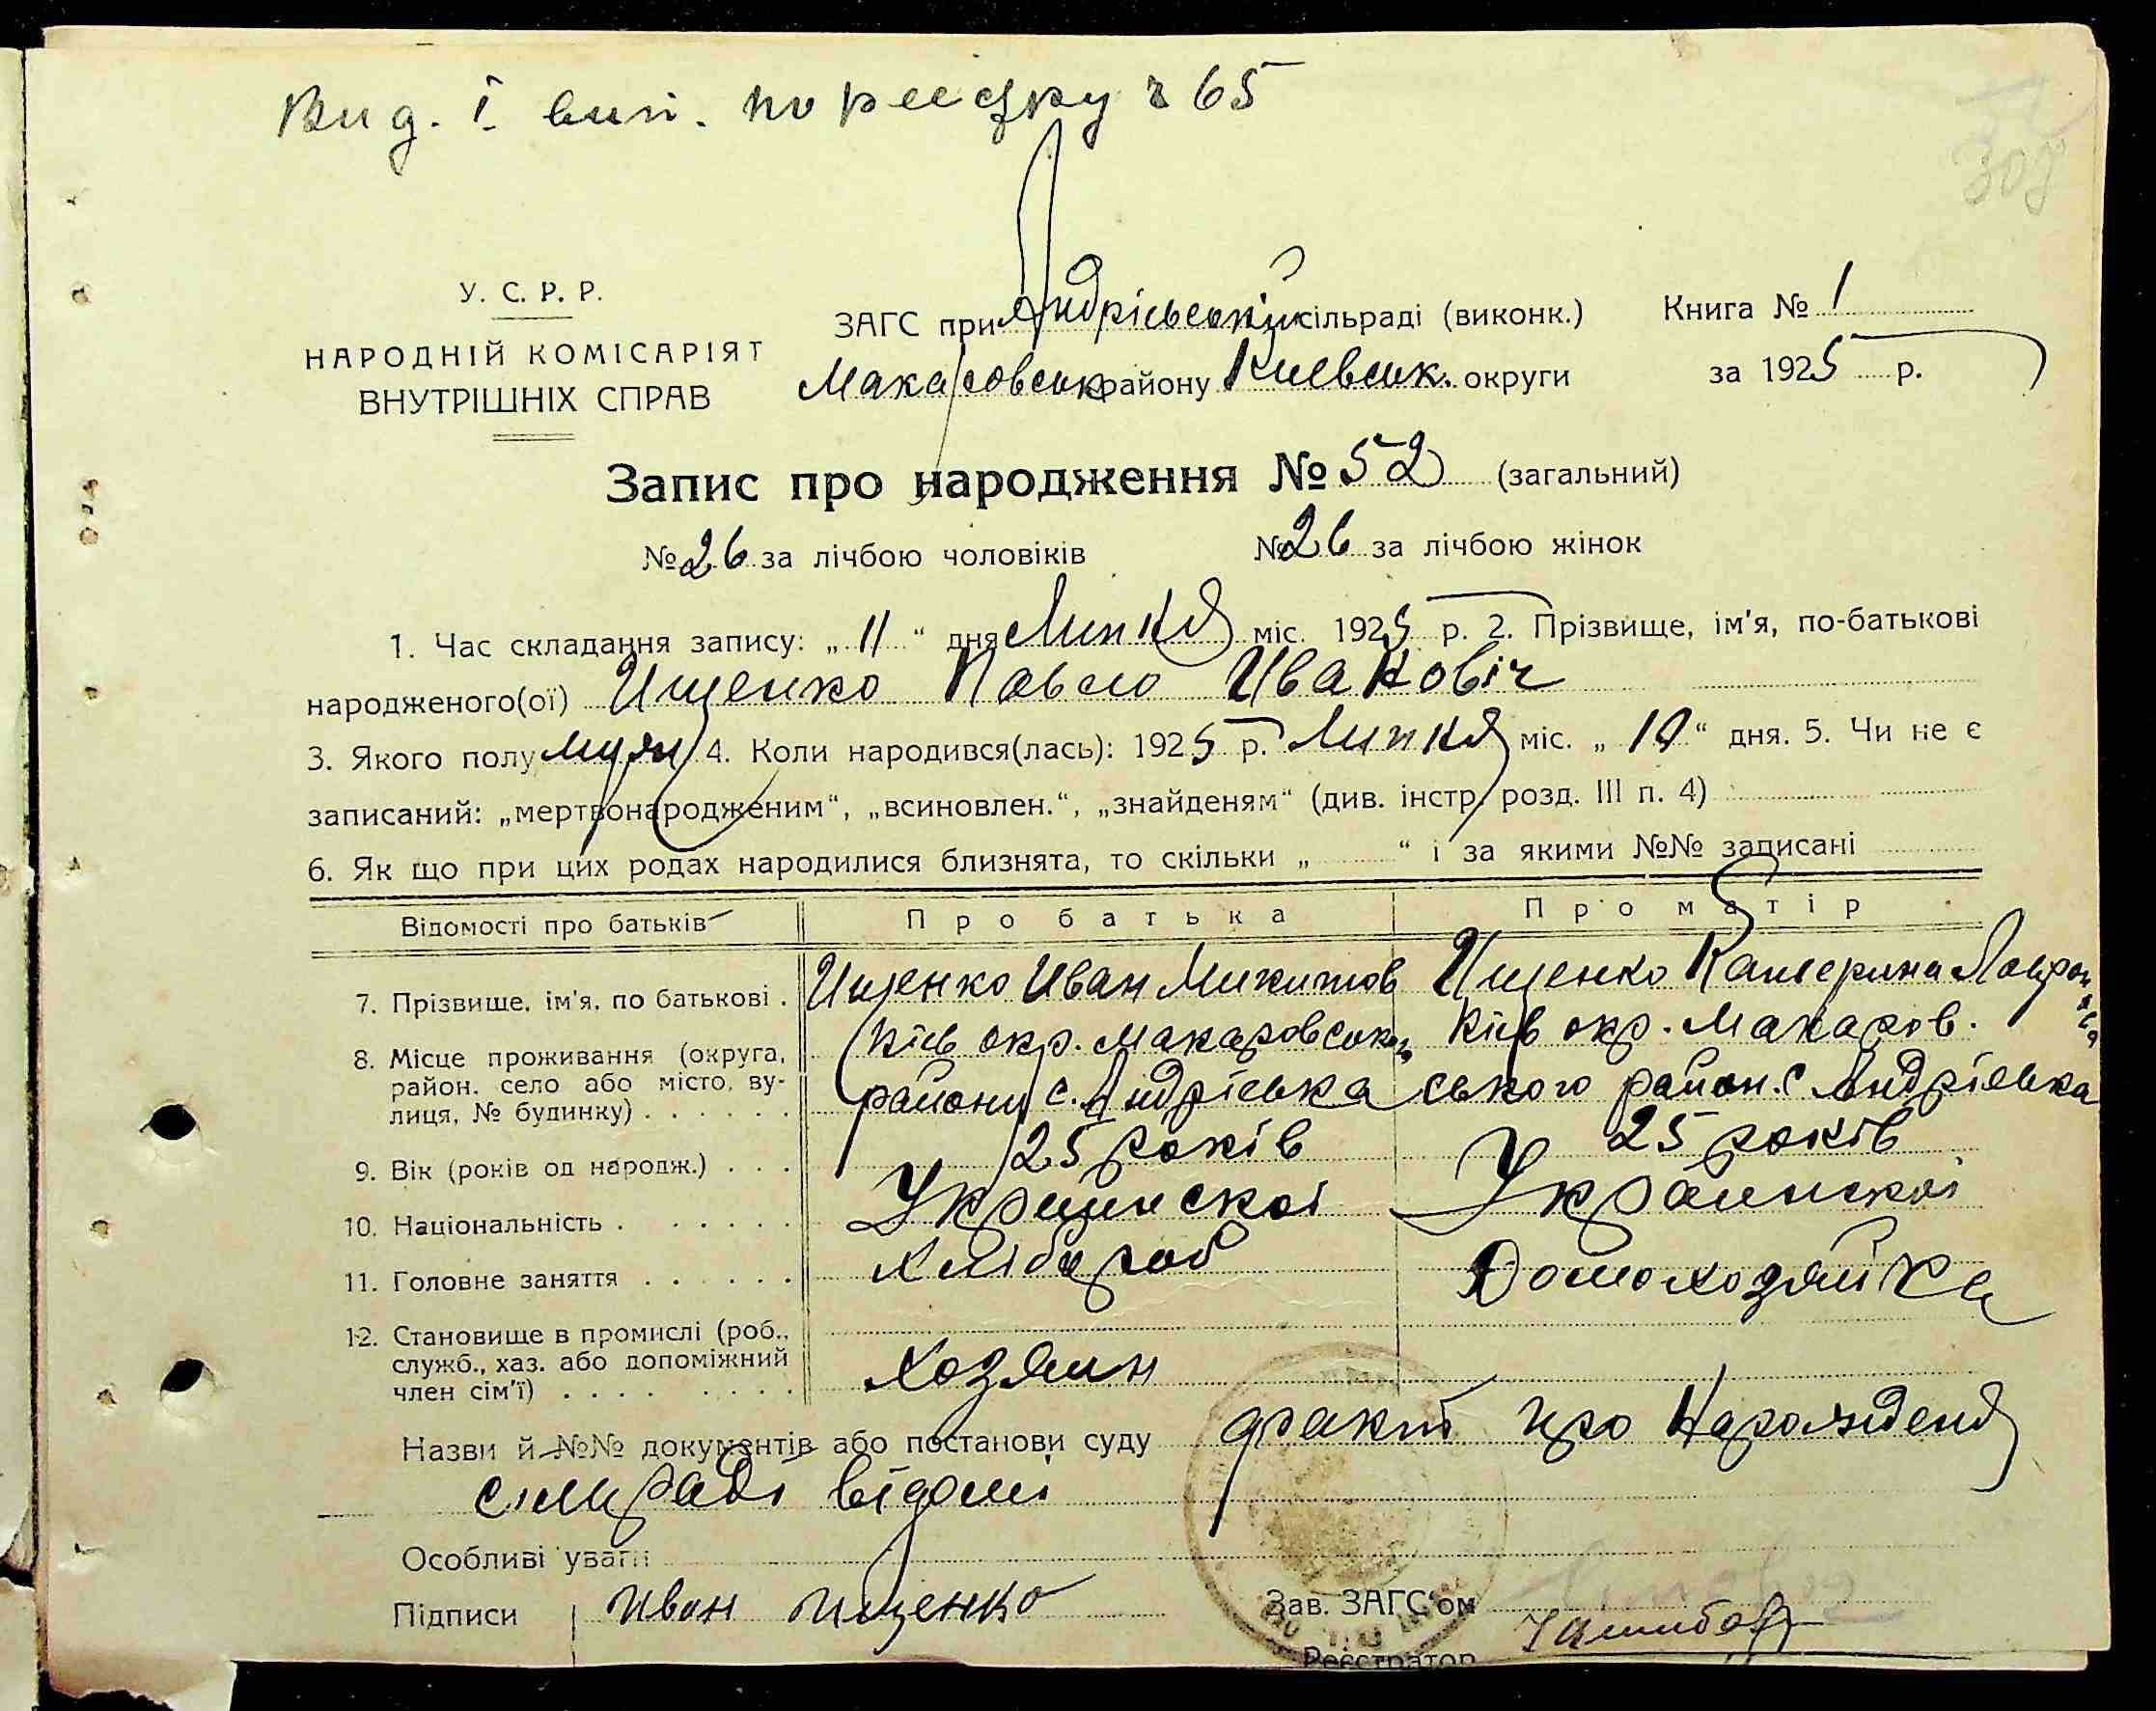 Вид. I вип. по реєстру № 65
309
У. С. Р. Р.
НАРОДНІЙ КОМІСАРІЯТ
ВНУТРІШНІХ СПРАВ
ЗАГС при Андріевській сільраді (виконк.)
Макаровськ району Киевськ. округи
Книга № 1
за 1925 р.
Запис про народження № 52 (загальний)
№ 26 за лічбою чоловіків № 26 за лічбою жінок
1. Час складання запису: „ 11 “ дня Липня міс. 1925 р. 2. Прізвище, ім'я, по-батькові
народженого(ої) Ищенко Павло Иванович
3. Якого полу муж 4. Коли народився(лась): 1925 р. Липня міс. „ 10 “ дня. 5. Чи не є
записаний: „мертвонародженим“, „всиновлен.“, „знайденям“ (див. інстр. розд. III п. 4)
6. Як що при цих родах народилися близнята, то скільки „ “ і за якими №№ записані
Відомості про батьків Про батька Про матір
7. Прізвище, ім'я, по батькові . Ищенко Иван Микитов Ищенко Катерина
8. Місце проживання (округа, район, село або місто, вулиця, № будинку) . . . . . . Київ окр. Макаровськог Київ окр. Макаров.
району с. Андріевка ського район. с Андріевка
9. Вік (років од народж.) . . . 25 років 25 років
10. Національність . . . . . . Украинскоі Украинскоі
11. Головне заняття . . . . . . Хлібороб Домохозяйка
12. Становище в промислі (роб., служб., хаз. або допоміжний член сім'ї) . . . . . . . . Хозяин
Назви й №№ документів або постанови суду факт про Нарождення
сільраді відомі
Особливі уваги
Підписи Иван Ищенко
Зав. ЗАГС'ом
Реєстратор